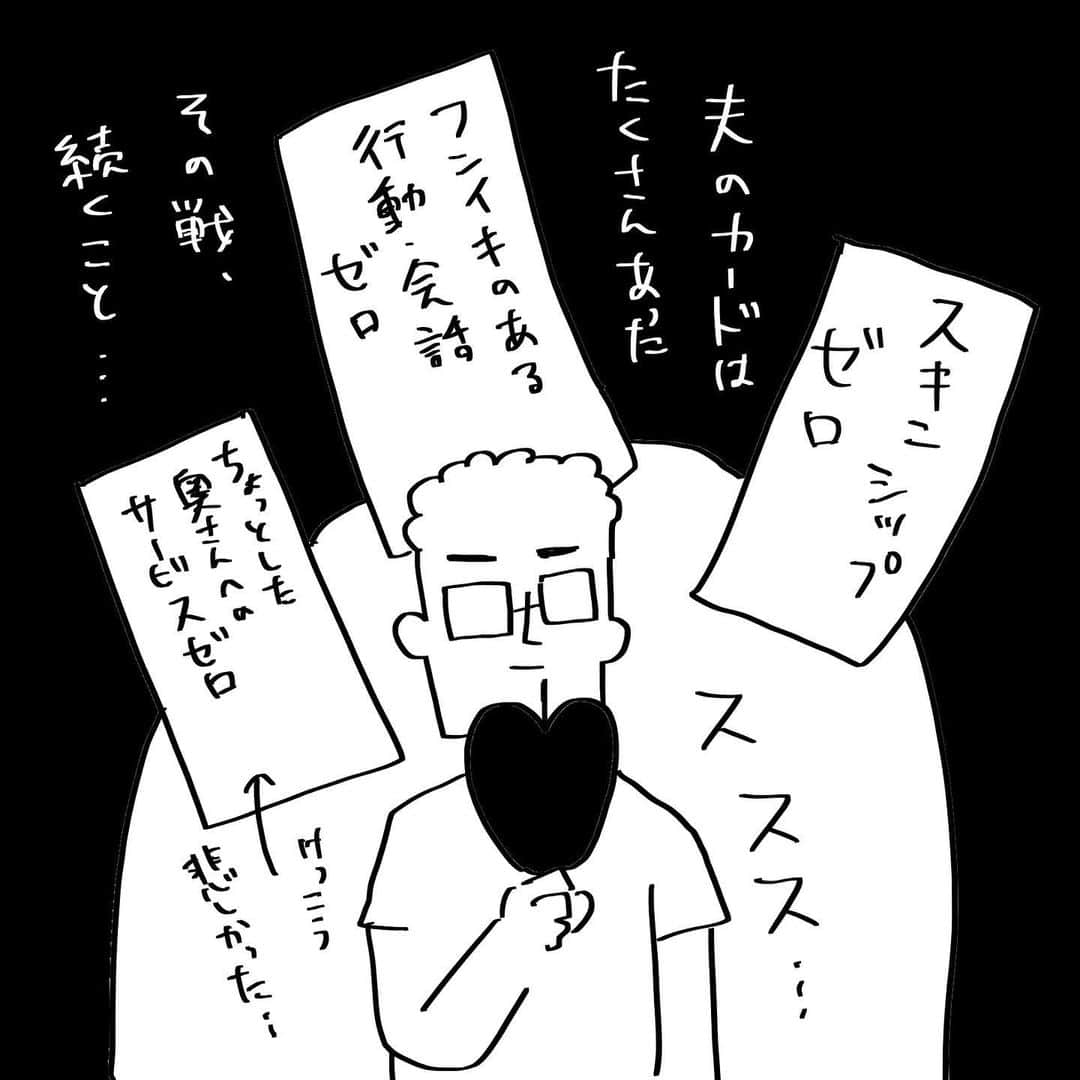 夫のカードは
たくさんあった
スキン
シップ
ゼロ
フンイキのある
行動・会話
ゼロ
その戦、
続くこと…
ちょっとした
奥さんへの
サービスゼロ
けっこう
悲しかった…
ススス…